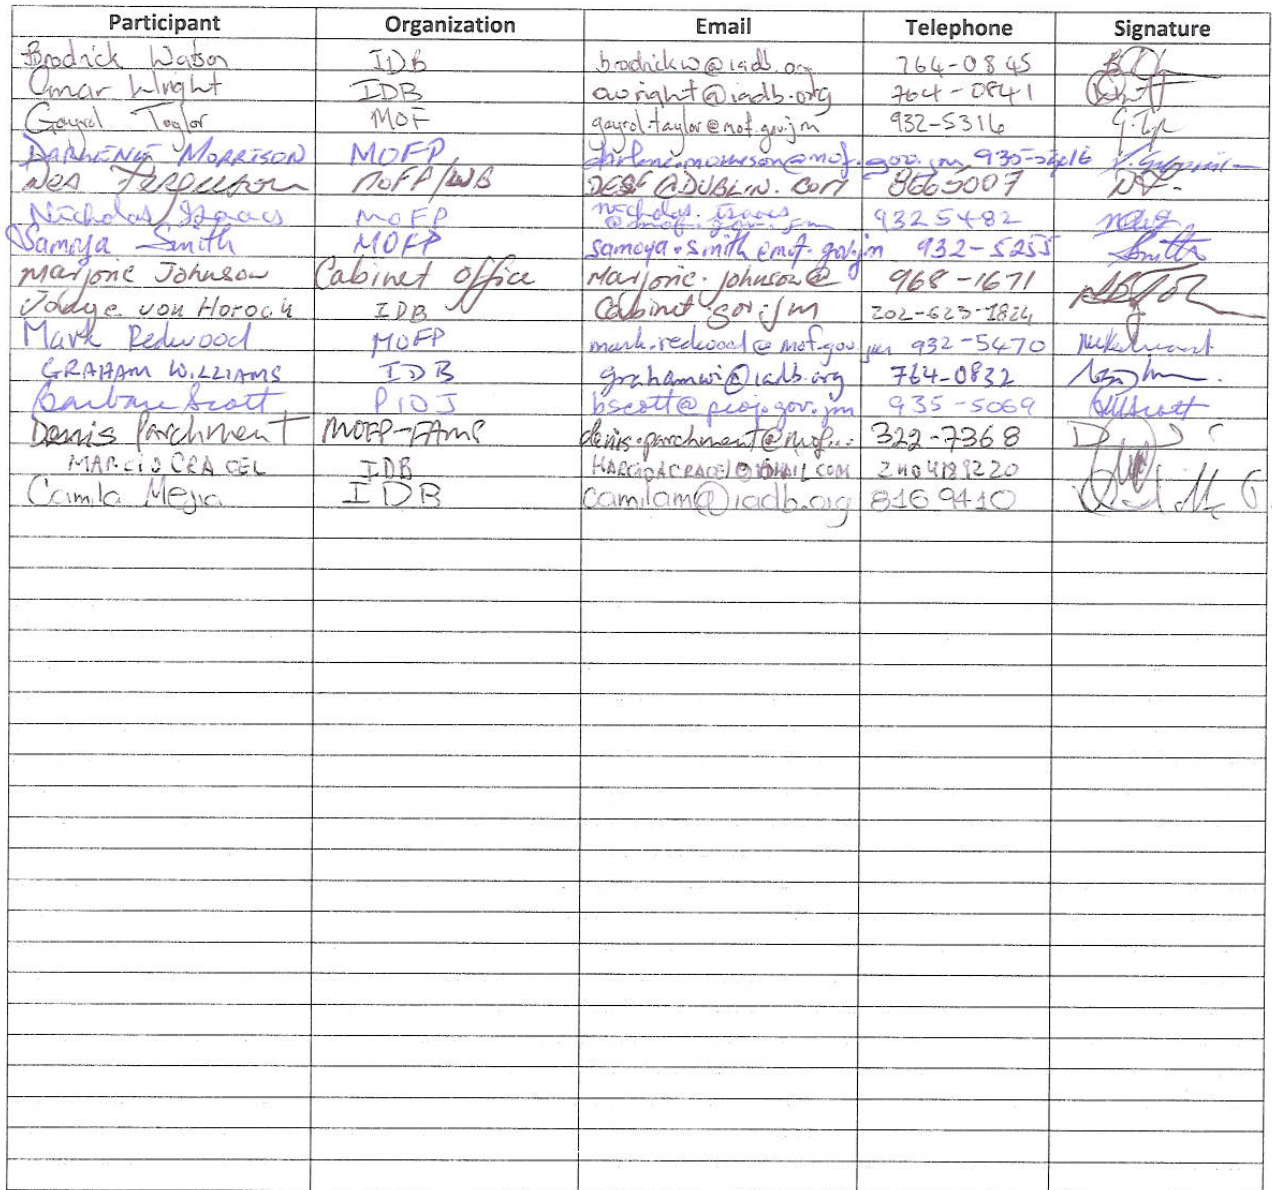 Participant Organization Email Telephone Signature
Brodrick Watson IDB brodrickw@iadb.org 764-0845
Omar Wright IDB owright@iadb.org 764-0841
Gayrol Taylor MOF gayrol.taylor@mof.gov.jm 932-5316
DARLENE MORRISON MOFP
Ferguson MOFP/WB 8665007
Nicholas Isaacs MOFP nicholas.isaacs 9325482
@mof.gov.jm
Samoya Smith MOFP samoya.smith@mof.gov.jm 932-5255 Smith
Marjorie Johnson Cabinet Office Marjorie.johnson@ 968-1671
IDB Cabinet.gov.jm 202-623-1824
Mark Redwood MOFP mark.redwood@mof.gov.jm 932-5470
GRAHAM WILLIAMS IDB grahamwi@iadb.org 764-0832
Barbara Scott PIOJ bscott@pioj.gov.jm 935-5069
Denis Parchment MOFP-FAMP denis.parchment@mof... 322-7368
MARCIO CRACEL IDB
Camila Mejia IDB camilam@iadb.org 8169410